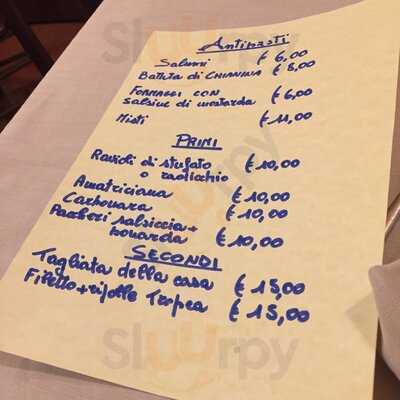 Sluurpy
Antipasti
Salumi € 6,00
Battuta di CHIANINA € 8,00
FORMAGGI CON
salsine di mostarda € 6,00
Misti € 11,00
PRIMI
Ravioli di stufato
o radicchio € 10,00
Amatriciana € 10,00
Carbonara € 10,00
Paccheri salsiccia+
bonarda € 10,00
SECONDI
Tagliata della casa € 15,00
Filetto+cipolle Tropea € 15,00
Sluurpy